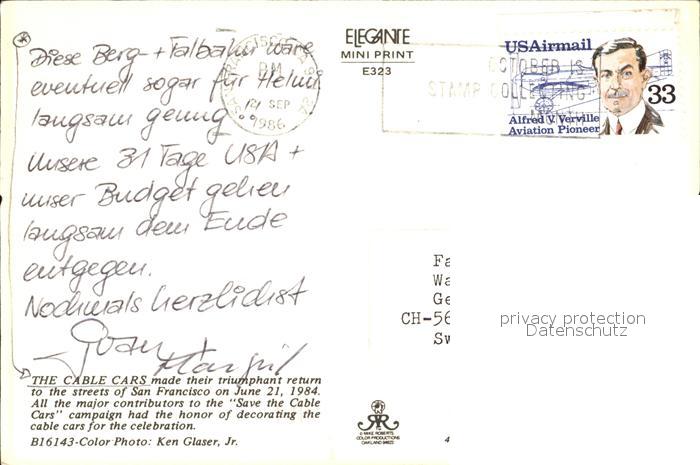 Diese Berg-+Talbahn wäre
eventuell sogar für Helmi
langsam genug
Unsere 31 Tage USA +
unser Budget gehen
langsam dem Ende
entgegen.
Nochmals herzlichst
THE CABLE CARS made their triumphant return
to the streets of San Francisco on June 21, 1984.
All the major contributors to the "Save the Cable
Cars" campaign had the honor of decorating the
cable cars for the celebration.
B16143-Color Photo: Ken Glaser, Jr.
ELEGANTE
MINI PRINT
E323
PM
SEP
1986
OCTOBER IS
STAMP COLLECTING
USAirmail
33
Alfred V. Verville
Aviation Pioneer
Fa
Wa
Ge
CH-56
Sw
privacy protection
Datenschutz
© MIKE ROBERTS
COLOR PRODUCTIONS
OAKLAND 94623
4